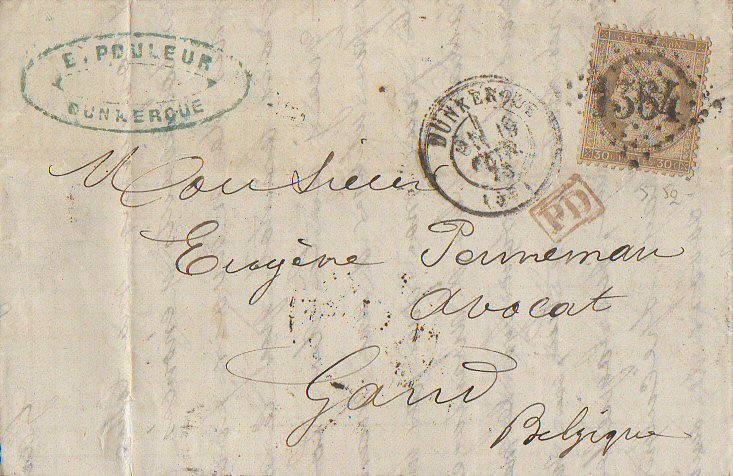 E. POULEUR
DUNKERQUE
DUNKERQUE
19
(59)
1364
30 30
PD
Monsieur
Eugène Penneman
Avocat
Gand
Belgique